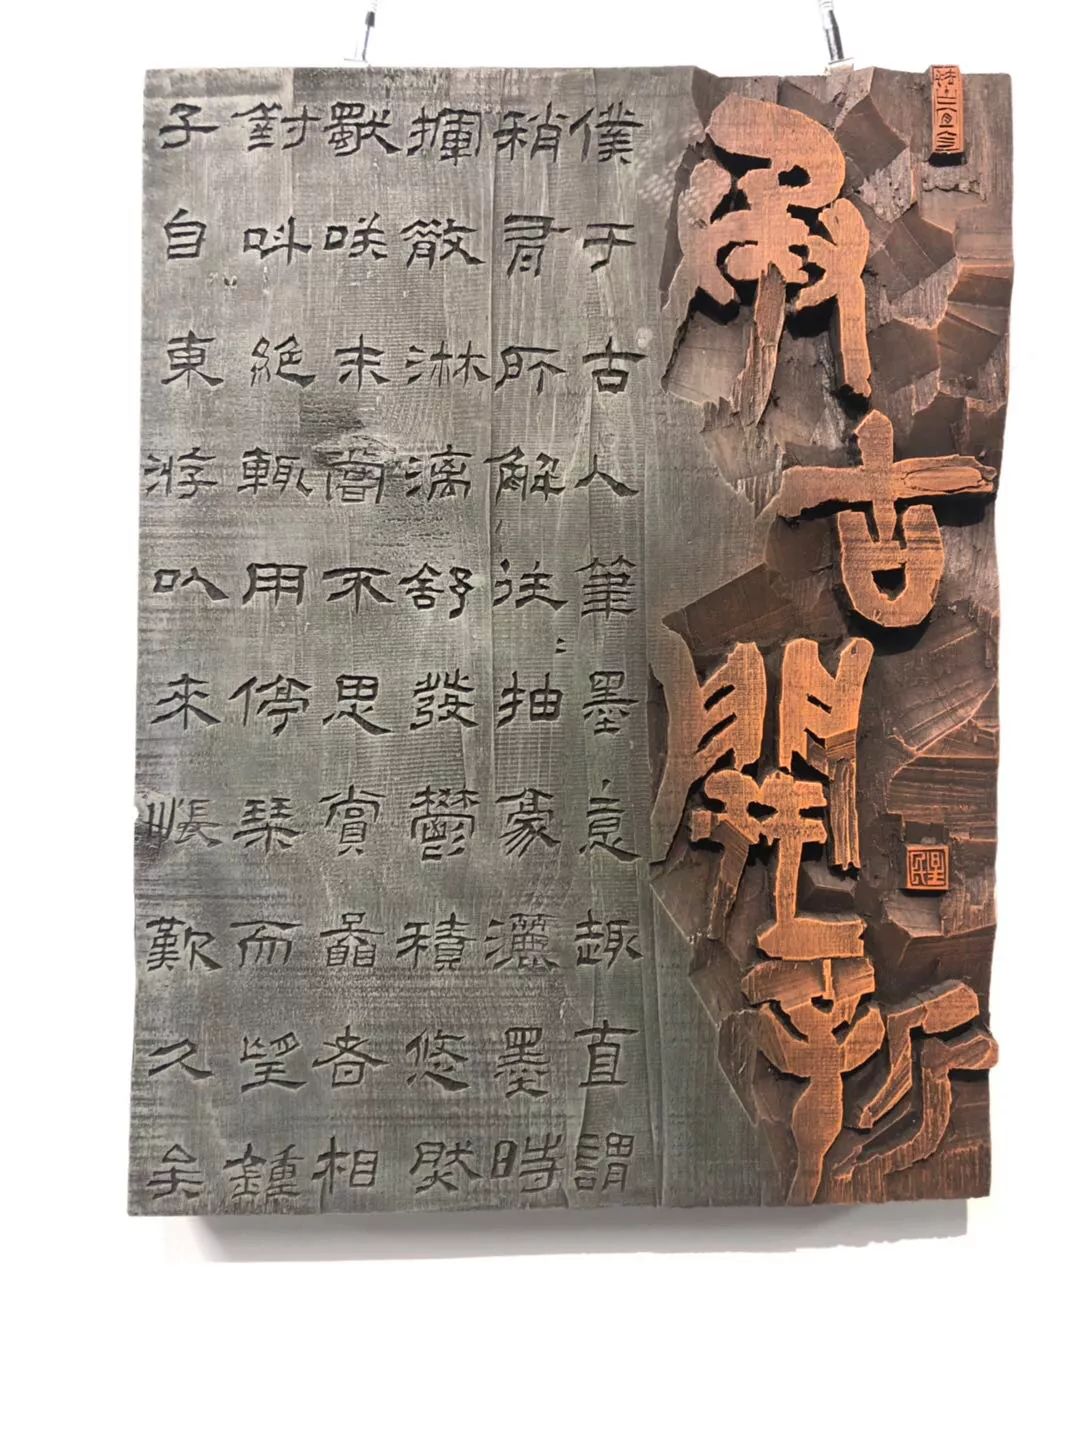 承古開新
僕于古人筆墨意趣直謂
稍有所解往〻抽豪灑墨時
揮散淋漓舒發鬱積悠然
獨咲未嘗不思賞者相
對叫絕輒用停琹而望鍾
子自東游以來悵歎久矣